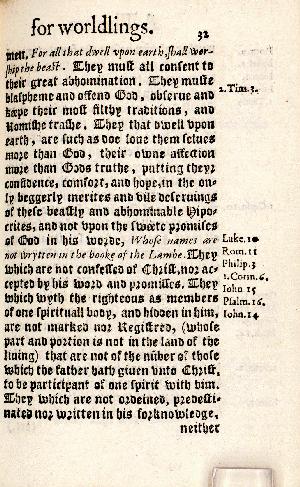 for worldlings.
32
men. For all that dwell vpon earth, shall wor-
ship the beast. They must all consent to
their great abhomination. They muste
blaspheme and offend God, obserue and
keepe their most filthy traditions, and
Romishe trashe. They that dwell vpon
earth, are such as doe loue them selues
more than God, their owne affection
more than Gods truthe, putting theyr
confidence, comfort, and hope, in the on-
ly beggerly merites and vile deseruings
of these beastly and abhominable Hipo-
crites, and not vpon the sweete promises
of God in his worde, Whose names are
not wrytten in the booke of the Lambe. They
which are not confessed of Christ, nor ac-
cepted by his word and promisses. They
which wyth the righteous as members
of one spirituall body, and hidden in him,
are not marked nor Registred, (whose
part and portion is not in the land of the
liuing) that are not of the nūber of those
which the father hath giuen vnto Christ,
to be participant of one spirit with him.
They which are not ordeined, predesti-
nated nor written in his forknowledge,
neither
2. Tim. 3.
Luke. 10
Rom. 11
Philip. 3
1. Corin. 6.
Iohn 15
Psalm. 16.
Iohn. 14